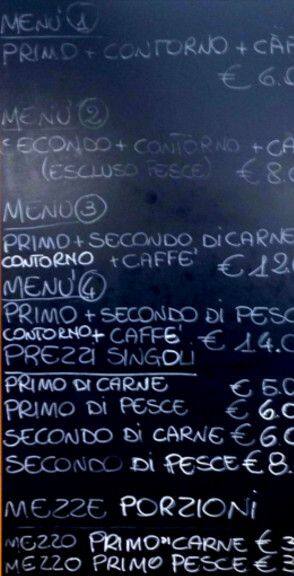 MENU' 1
PRIMO + CONTORNO + CAF
€ 6.0
MENU' 2
SECONDO + CONTORNO + CA
(ESCLUSO PESCE) € 8.0
MENU' 3
PRIMO + SECONDO Di CARNE
CONTORNO + CAFFE' € 12.0
MENU' 4
PRIMO + SECONDO Di PESC
CONTORNO + CAFFE' € 14.0
PREZZI SINGOLI
PRIMO Di CARNE € 5.0
PRIMO Di PESCE € 6.0
SECONDO Di CARNE € 6.0
SECONDO Di PESCE € 8.
MEZZE PORZIONi
MEZZO PRIMO CARNE € 3
MEZZO PRIMO PESCE € 3